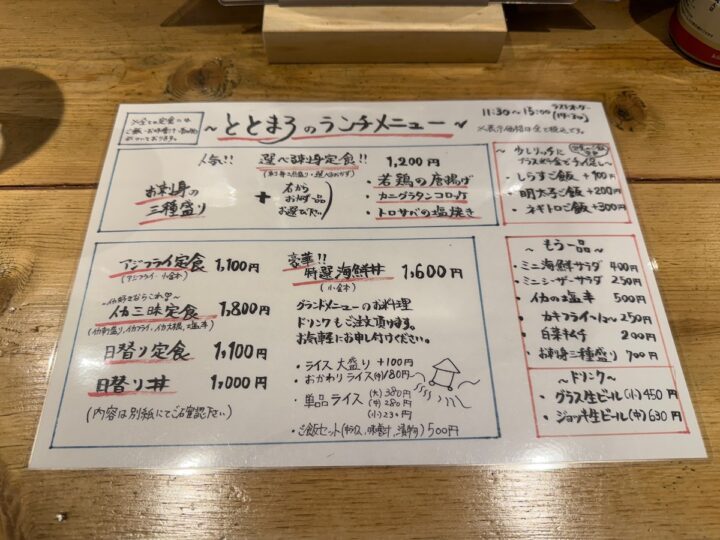 ※全ての定食には
ご飯・お味噌汁・漬物が
ついております。
～ととまろのランチメニュー～
11:30～15:00
ラストオーダー
(14:30)
※表示価格は全て税込です。
人気!! 選べるお刺身定食!! 1,200円
お刺身の
三種盛り
+
右から
おかず一品
お選び下さい
・若鶏の唐揚げ
・カニグラタンコロッケ
・トロサバの塩焼き
アジフライ定食 1,100円
(アジフライ・小鉢)
～イカ好きならこれ!?～
イカ三昧定食 1,800円
(イカ刺盛り,イカフライ,イカ大根,塩辛)
日替り定食 1,100円
日替り丼 1,000円
(内容は別紙にてご確認下さい)
豪華!!
特選海鮮丼 1,600円
(小鉢)
グランドメニューのお料理
ドリンクもご注文頂けます。
お気軽にお申し付けください。
・ライス大盛り +100円
・おかわりライス(中)180円
・単品ライス (大)380円
(中)280円
(小)230円
・ご飯セット(ライス,味噌汁,漬物) 500円
～ウレリッチに
プラス料金でチェンジ～
・しらすご飯 +100円
・明太子ご飯 +200円
・ネギトロご飯 +300円
～もう一品～
・ミニ海鮮サラダ 400円
・ミニシーザーサラダ 250円
・イカの塩辛 500円
・カキフライ 250円
・白菜キムチ 200円
・お刺身三種盛り 700円
～ドリンク～
・グラス生ビール(小)450円
・ジョッキ生ビール(中)630円